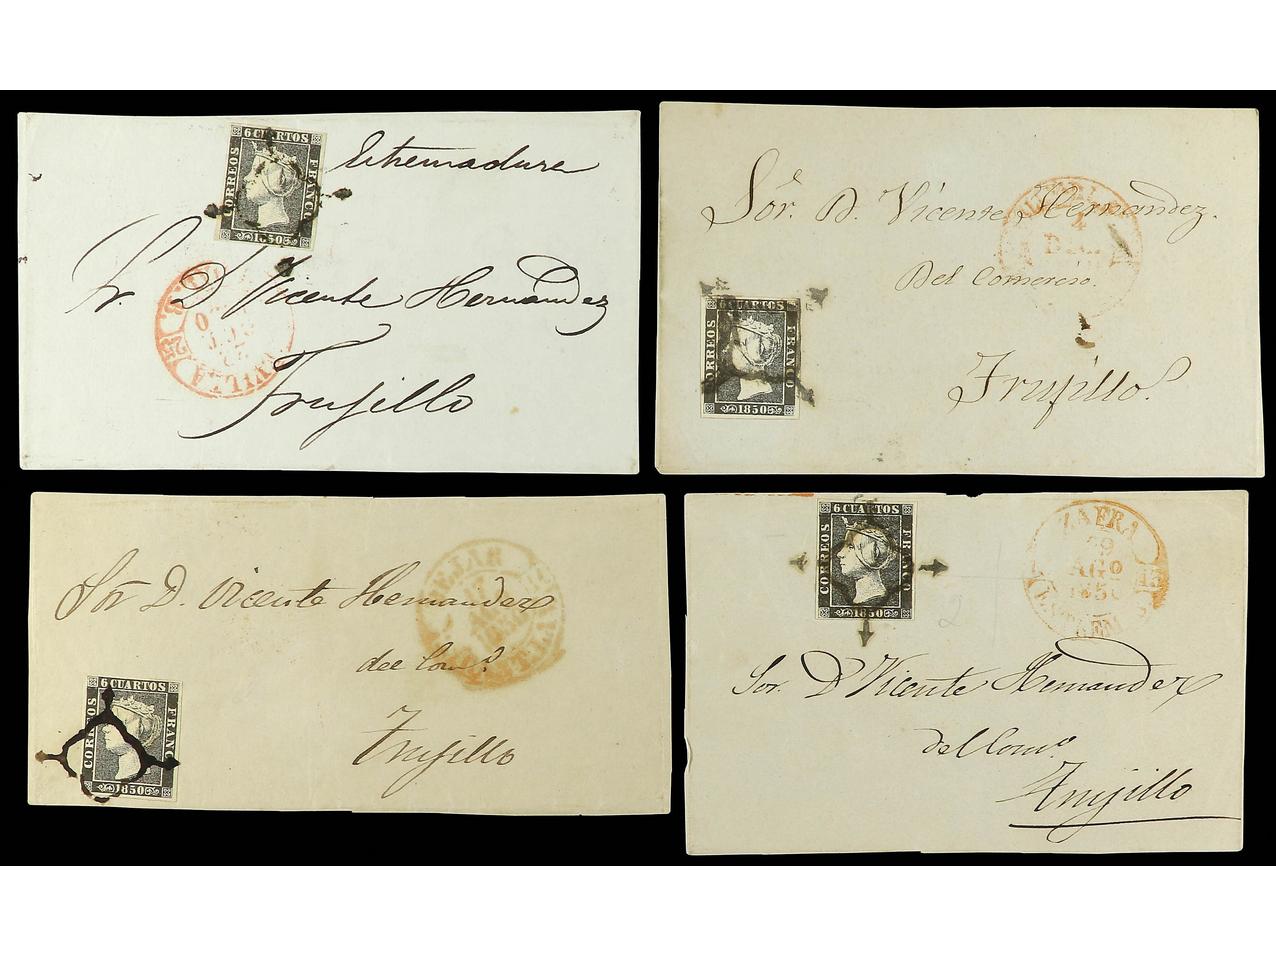 6 CUARTOS
CORREOS
FRANCO
1850
Extremadura
Sr. D Vicente Hernandez
Trujillo
Sor. D. Vicente Hernandez.
Del Comercio.
Trujillo.
6 CUARTOS
CORREOS
FRANCO
1850
BEJAR
Sor D. Vicente Hernandez
del Como.
Trujillo
6 CUARTOS
CORREOS
FRANCO
1850
6 CUARTOS
CORREOS
FRANCO
1850
ZAFRA
29
AGO
1850
ESTREM
15
Sor. D Vicente Hernandez
del Como.
Trujillo